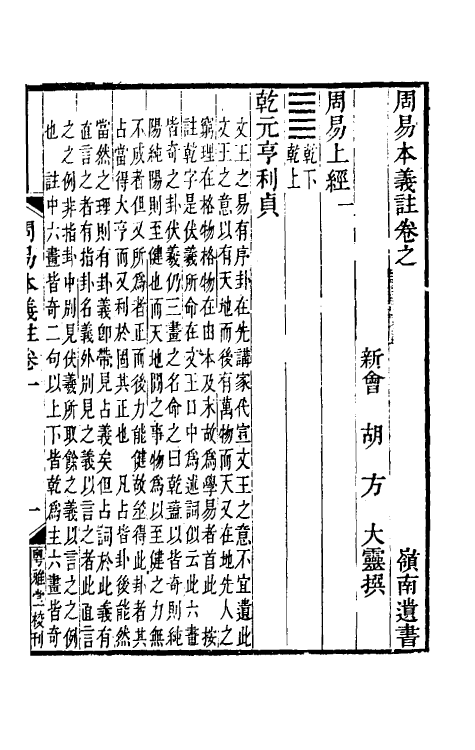 周易本義註卷之
嶺南遺書
新會　胡　方　大靈撰
周易上經一
乾下
乾上
乾元亨利貞
文王之易有序卦在先講家代宣文王之意不宜遺此
文王之意以有天地而後有萬物而天又在地先人之
窮理在格物格物在由本及末故爲學易者首此　按
註乾字是伏羲所命在文王口中爲述詞似云此六畫
皆奇之卦伏羲仍三畫之名命之曰乾蓋以皆奇則純
陽純陽則至健也而天地間之事物爲以至健之力無
不成者但又所爲者正而後力能健故筮得此卦者其
占當得大亨而又利於固其正也　凡占皆卦後能然
當然之理則有卦義卽帶見占義矣但占詞於此義有
直言之者有指卦名義外別見之義以言之者此直言
之之例非指卦中別見伏羲所取餘之義以言之之例
也　註中六畫皆奇二句以上下皆乾爲主六畫皆奇
周易本義註卷一
一
粵雅堂校刊